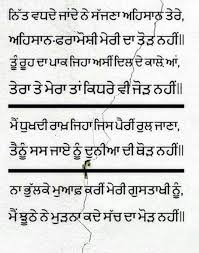 ਨਿੱਤ ਵਧਦੇ ਜਾਂਦੇ ਨੇ ਸੱਜਣਾ ਅਹਿਸਾਨ ਤੇਰੇ,
ਅਹਿਸਾਨ-ਫਰਾਮੋਸ਼ੀ ਮੇਰੀ ਦਾ ਤੋੜ ਨਹੀਂ॥
ਤੂੰ ਰੂਹ ਦਾ ਪਾਕ ਜਿਹਾ ਅਸੀਂ ਦਿਲ ਦੇ ਕਾਲੇ ਆਂ,
ਤੇਰਾ ਤੇ ਮੇਰਾ ਤਾਂ ਕਿਧਰੇ ਵੀ ਜੋੜ ਨਹੀਂ॥
ਮੈਂ ਧੁਖਦੀ ਰਾਖ ਜਿਹਾ ਜਿਸ ਪੈਰੀਂ ਰੁਲ ਜਾਣਾ,
ਤੈਨੂੰ ਸਸ ਜਾਏ ਨੂੰ ਦੁਨੀਆ ਦੀ ਥੋੜ ਨਹੀਂ॥
ਨਾ ਭੁੱਲਕੇ ਮੁਆਫ਼ ਕਰੀਂ ਮੇਰੀ ਗੁਸਤਾਖੀ ਨੂੰ,
ਮੈਂ ਝੂਠੇ ਨੇ ਮੁੜਨਾ ਕਦੇ ਸੱਚ ਦਾ ਮੋੜ ਨਹੀਂ॥